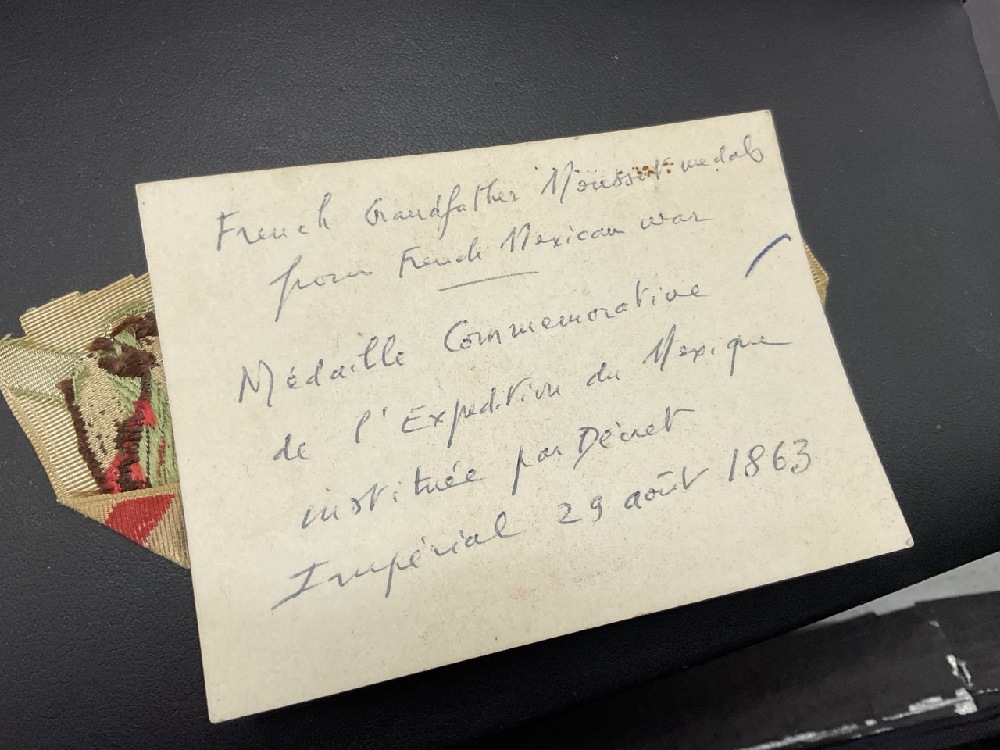 French Grandfather Moussot medals
from French Mexican war
Médaille Commemorative
de l'Expedition du Mexique
instituée par Décret
Impérial 29 août 1863